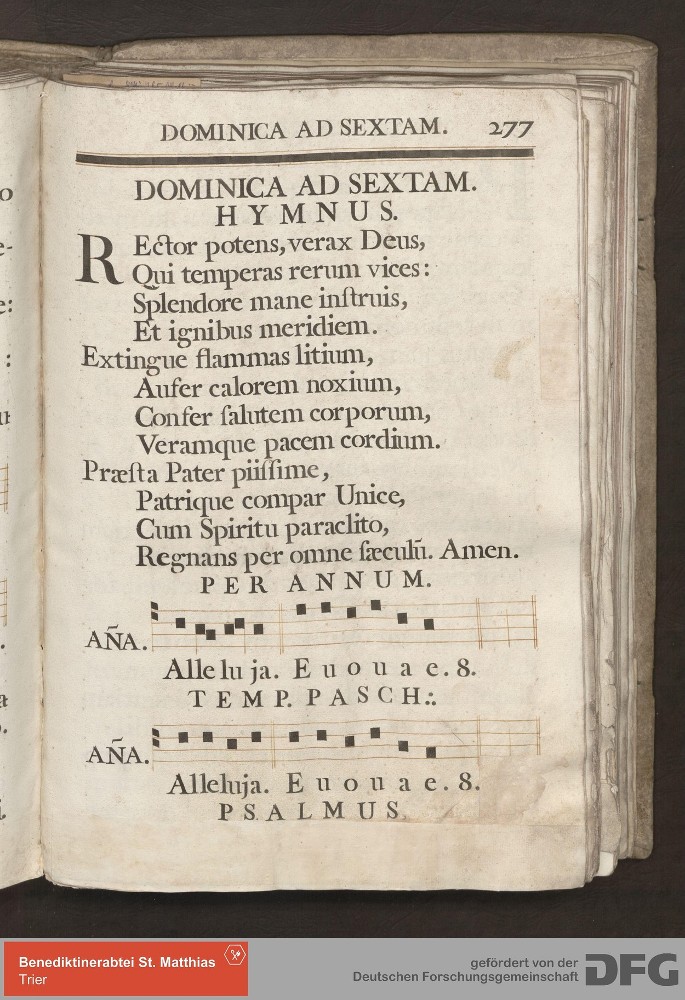 DOMINICA AD SEXTAM. 277
DOMINICA AD SEXTAM.
HYMNUS.
REctor potens, verax Deus,
Qui temperas rerum vices:
Splendore mane inſtruis,
Et ignibus meridiem.
Extingue flammas litium,
Aufer calorem noxium,
Confer ſalutem corporum,
Veramque pacem cordium.
Præſta Pater piiſſime,
Patrique compar Unice,
Cum Spiritu paraclito,
Regnans per omne ſæculū. Amen.
PER ANNUM.
AÑA.
Alleluja. E u o u a e. 8.
TEMP. PASCH:.
AÑA.
Alleluja. E u o u a e. 8.
PSALMUS.
Benediktinerabtei St. Matthias
Trier
gefördert von der
Deutschen Forschungsgemeinschaft
DFG